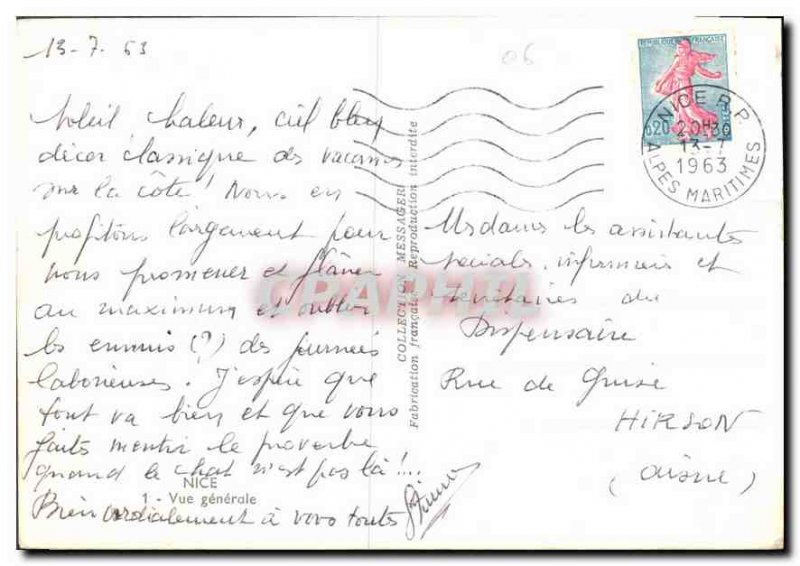 13-7.63
06
Soleil chaleur, ciel bleu
décor classique des vacances
sur la côte! Nous en
profitons largement pour
nous promener et flâner
au maximum et oublier
les ennuis (?) des journées
laborieuses. J'espère que
tout va bien et que vous
faites mentir le proverbe
quand le chat n'est pas là!...
NICE
1 - Vue générale
Bien cordialement à vous toutes
COLLECTION MESSAGER
Fabrication française Reproduction interdite
CPAPHIL
REPUBLIQUE FRANÇAISE
0,20
NICE R.P.
20H30
13-7
1963
ALPES MARITIMES
Mesdames les assistantes
sociales, infirmières et
secrétaires du
Dispensaire
Rue de Guise
HIRSON
(Aisne)